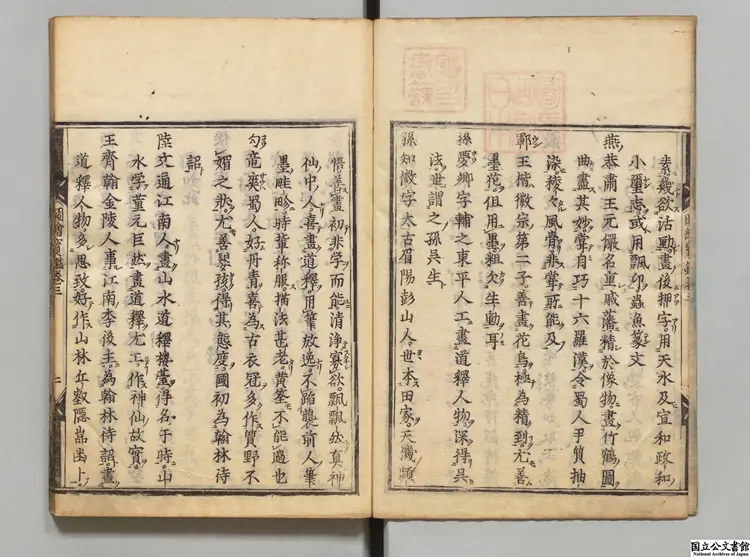 素幾欲活動畫後押字用天水及宣和政和
小璽志或用瓢印蟲魚篆文
燕恭肅王元儼名重戚藩精於像物畫竹鶴圖
曲盡其妙嘗自巧十六羅漢令蜀人尹質抽
染稜々風骨非常所能及
鄆王楷徽宗第二子善畫花鳥極為精到尤善
墨花但用墨粗欠生動耳
孫慶卿字輔之東平人工畫道釋人物深得吳
法世謂之孫吳生
孫知微字太古眉陽彭山人世本田家天機頴
悟善畫初非学而能清浄寡欲飄飄然真神
仙中人喜畫道釋用筆放逸不蹈襲前人筆
墨畦畛時輩称服描法甚老黄筌不能過也
勾竜爽蜀人好丹青喜為古衣冠多作質野不
媚之狀尤善嬰孩得其態度國初為翰林待
詔
陸文通江南人畫山水道釋楼臺得名于時山
水学董元巨然畫道釋尤工作神仙故實
王齊翰金陵人事江南李後主為翰林待詔畫
道釋人物多思致好作山林丘壑隠嵓幽卜
圖繪寶鑑卷三
二
国立公文書館
National Archives of Japan